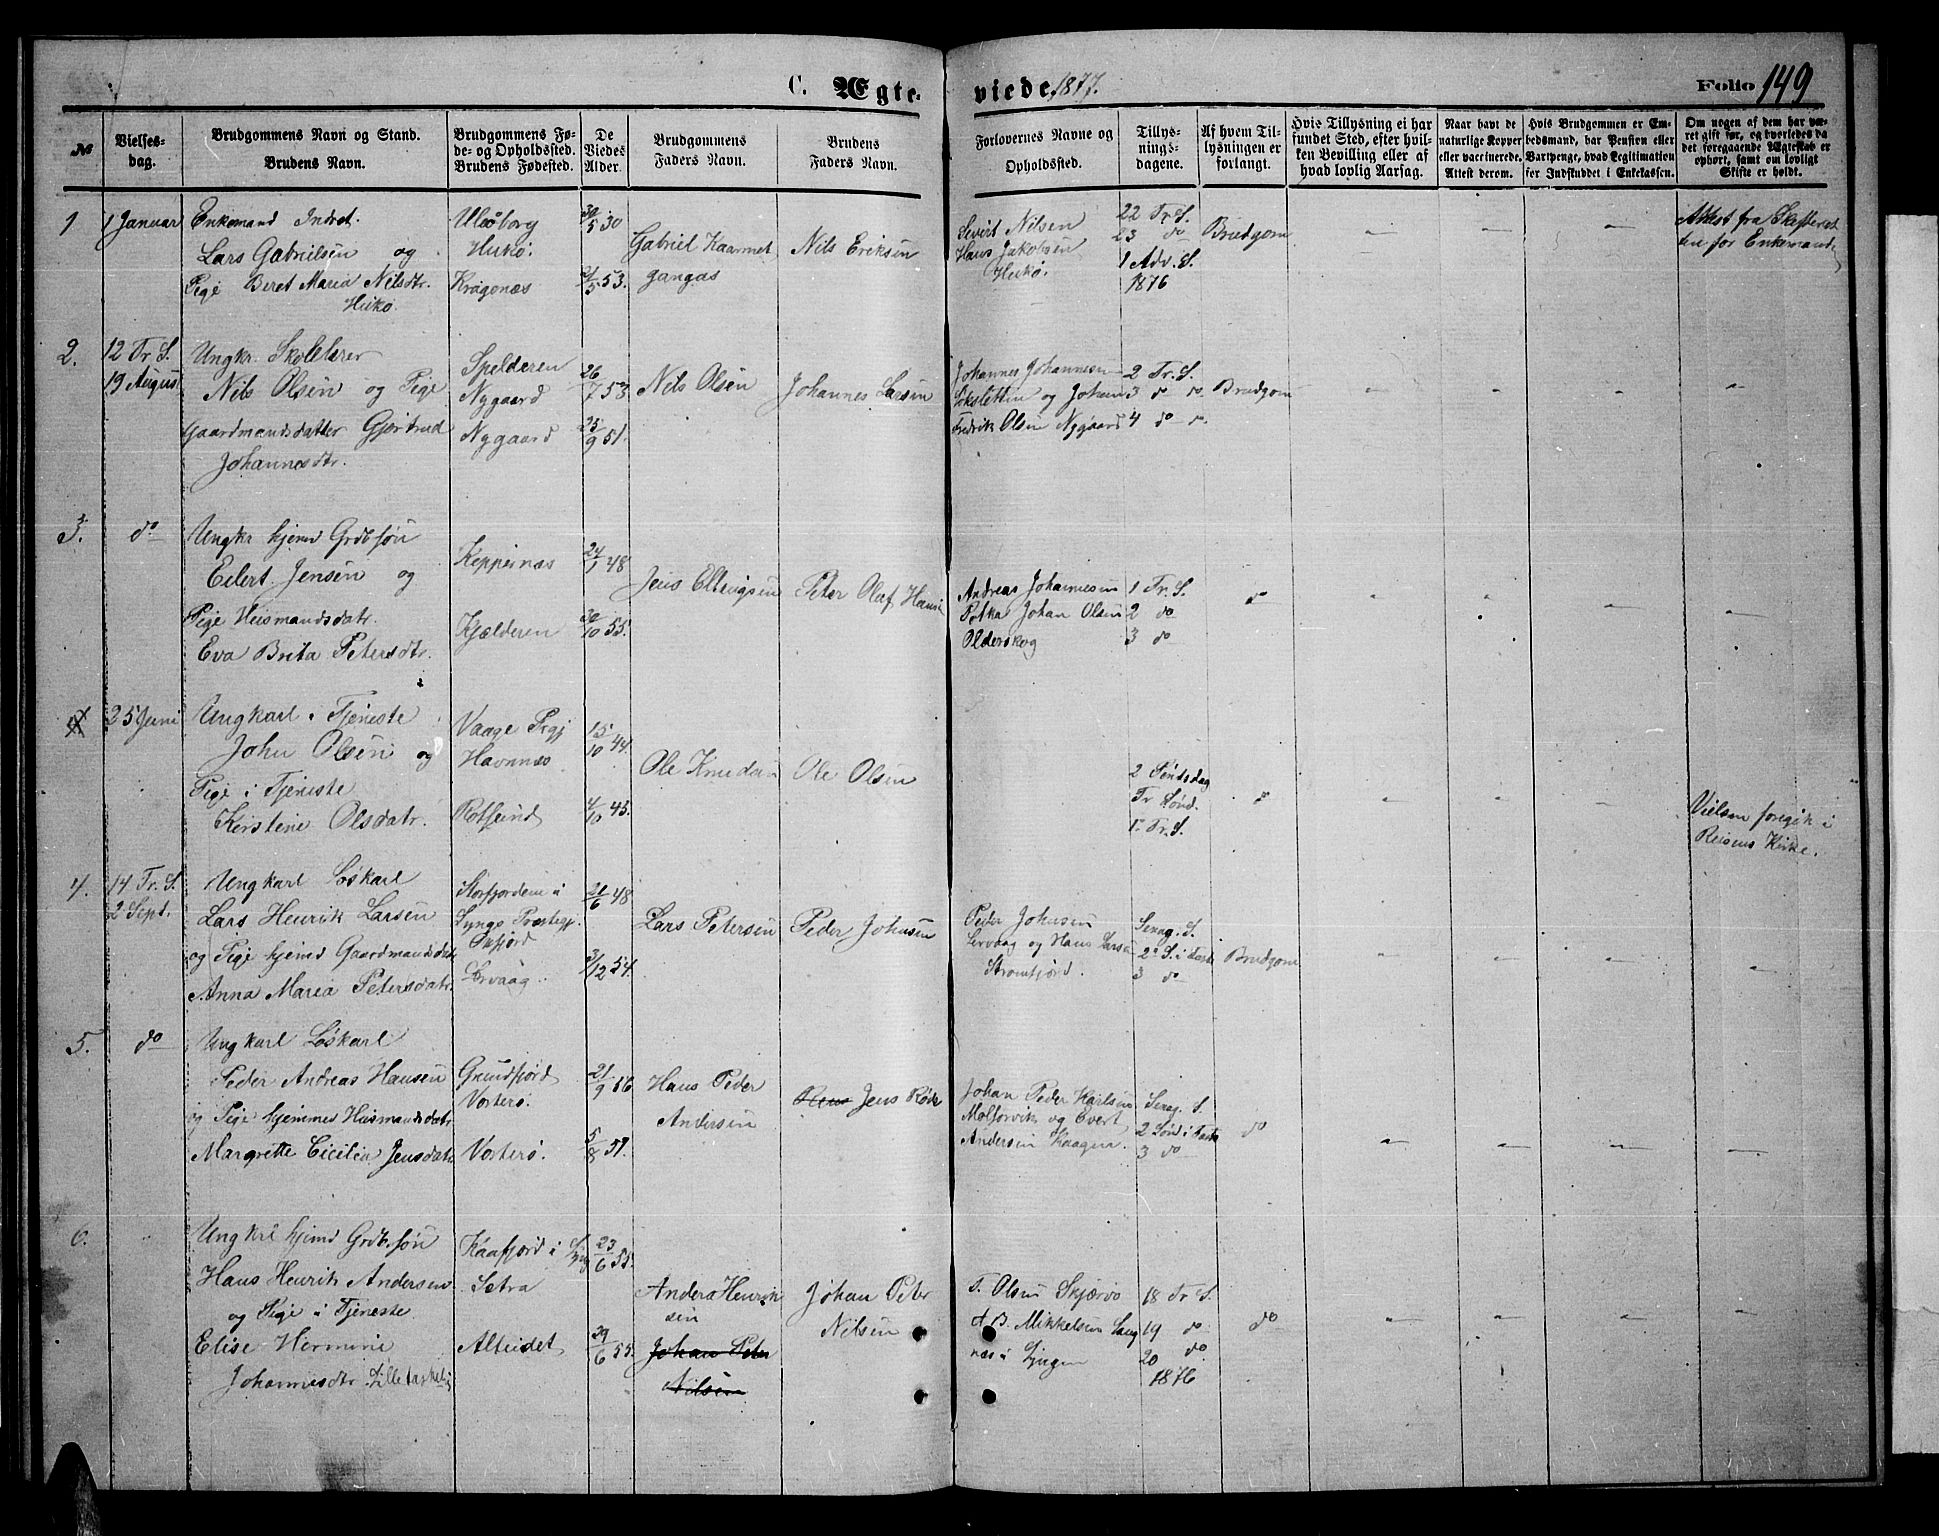 C. Ægteviede 1877.
Folio 149
№
Vielsesdag.
Brudgommens Navn og Stand.
Brudens Navn.
Brudgommens Føde- og Opholdssted.
Brudens Fødested.
De Viedes Alder.
Brudgommens
Faders Navn.
Brudens
Faders Navn.
Forlovernes Navne og
Opholdssted.
Tillysningsdagene.
Af hvem Tillysningen er forlangt.
Hvis Tillysning ei har fundet Sted, efter hvilken Bevilling eller af hvad lovlig Aarsag.
Naar havt de naturlige Kopper eller vaccinerede. Attest derom.
Hvis Brudgommen er Embedsmand, har Pension eller Vartpenge, hvad Legitimation for Indskuddet i Enkekassen.
Om nogen af dem har været gift før, og hvorledes da det foregaaende Ægteskab er ophørt, samt om lovligt Skifte er holdt.
1 1 Januar Enkemand Indret. Uleåborg 30/5 30 Sivert Nilsen 22 Tr. S. Attest fra Skifteret
Lars Gabrielsen og Hukø. Gabriel Kaarmet Nils Eriksen Hans Jakobsen 23 do Brudgom ten for Enkemand
gangas Hukø. 1 Adv. S.
Pige Beret Maria Nilsdtr. Kragenæs 2/5 53. 1876
Hukø.
2. 12 Tr. S. Ungkr. Skolelærer Spelderen 26/7 53 Johannes Johannesen 2 Tr. S.
19 August Nils Olsen og Pige Nygaard Nils Olsen Johannes Larsen og Johan 3 do Brudgom
Gaardmandsdatter Gjertrud Nygaard 25/9 51. Fredrik Olsen Nygaard 4 do
Johannesdtr.
3. do Ungkr hjemd Grdb.søn Keppernæs 24/1 48
Eilert Jensen og Jens Ellevigsen Peter Olaf Hansen Andreas Johannesen 1 Tr. S. do
Pige Husmandsdatr. Kjælderen 30/10 55. Potka Johan Olsen 2 do
Eva Brita Petersdtr. Olderskog 3 do
4 25 Juni Ungkarl i Tjeneste Vaage Prgj 15/10 44.
John Olsen og Havnnæs Ole Knudsen Ole Olsen 2 Søndag
Pige i Tjeneste Tr. Sønd. do
Kerstine Olsdatr. Rotsund 4/10 45. 1. Tr. S. Vielsen foregik i
Reisens Kirke.
4. 14 Tr. S. Ungkarl Løskarl Storfjorden i 21/6 48
2 Sept. Lars Henrik Larsen Lyngs Præstegj. Lars Petersen Peder Johnsen Peder Johnsen Sexag. S.
og Pige hjemd Gaardmandsdatr. Oxfjord Lervaag og Hans Larsen 2 S. i Faste Brudgom
Anna Maria Petersdatr. Lervaag 3/12 54. Stromfjord. 3 do
5. do Ungkarl Løskarl
Peder Andreas Hansen Grundfjord 21/9 56 Hans Peder Jens Røde Johan Peder Karlsen Sexag. S.
og Pige hjemme Husmandsdatr. Vorterø. Andersen og Evert 2 Sønd i Faste do
Margrette Cicilia Jensdatr. Vorterø. 5/8 57. Andersen Kaagen. 3 do
6. Ungkrl hjemd Grdb.søn Kaafjord i Lyng 23/6 55.
Hans Henrik Andersen Sætra Anders Henrik Johan Peter T. Olsen Skjærvø 18 Tr. S.
og Pige i Tjeneste sen Nilsen Mikkelsen 19 do do
Elise Hermine Alteidet 29/6 55. Johan Peter i Lyngen 20 do
Johannesdtr. Nilsen 1876